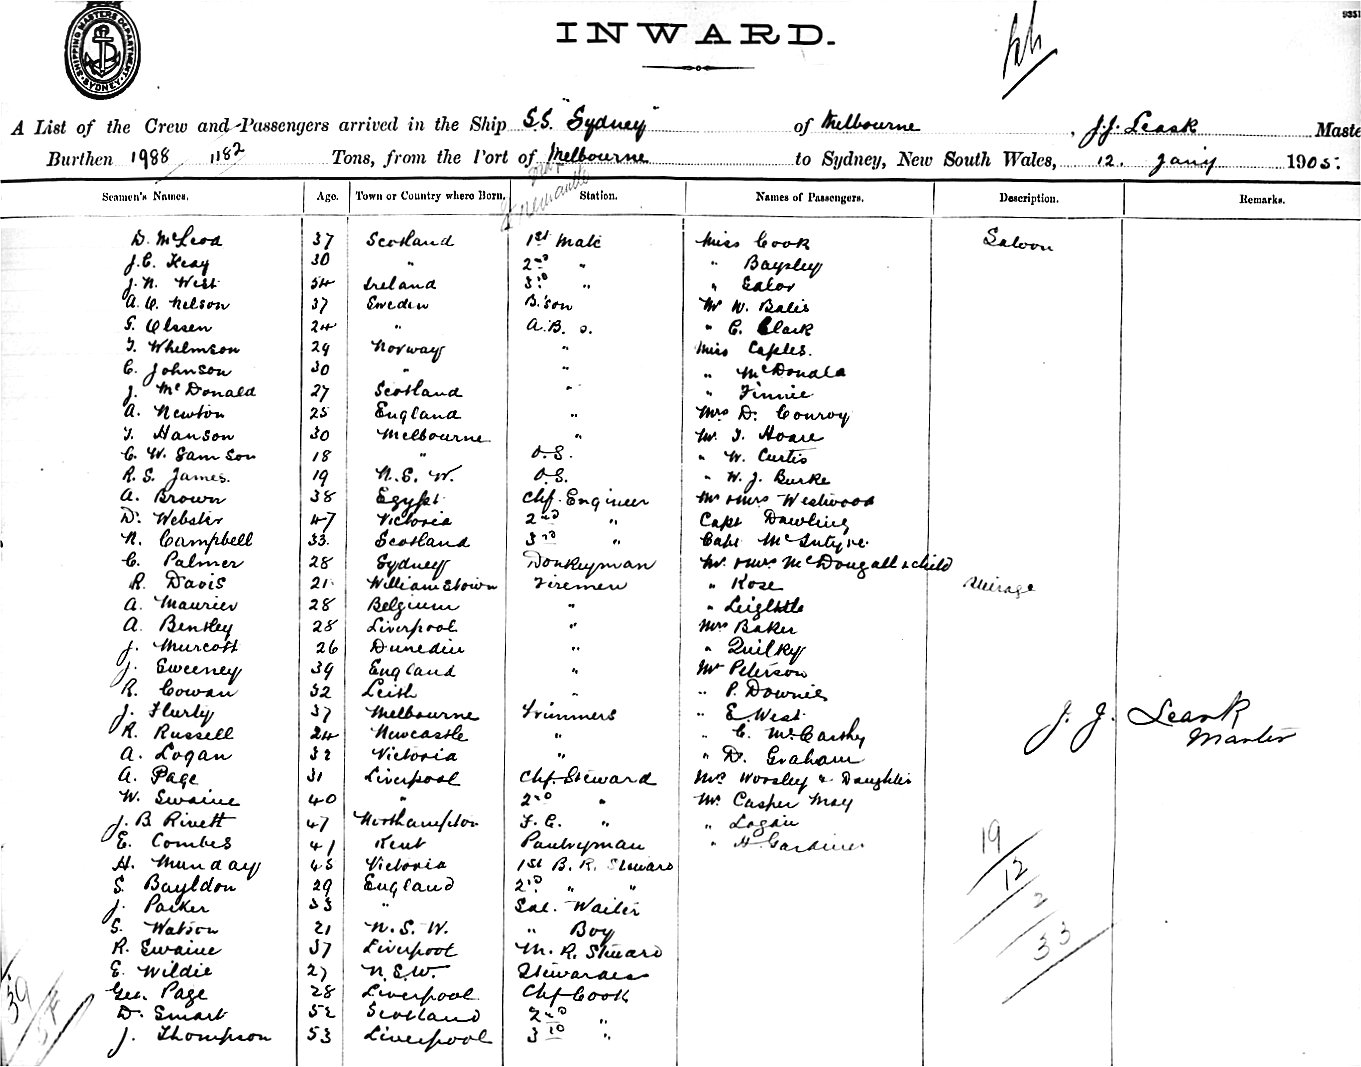 SHIPPING MASTERS DEPARTMENT SYDNEY
INWARD.
A List of the Crew and Passengers arrived in the Ship S.S. "Sydney" of Melbourne, J.J. Leask Maste
Burthen 1988 1182 Tons, from the Port of Melbourne to Sydney, New South Wales, 12. Jany 1905.
Fremantle
Seamen's Names. Age. Town or Country where Born. Station. Names of Passengers. Description. Remarks.
D. McLeod 37 Scotland 1st Mate Miss Cook Saloon
J.C. Keay 30 " 2nd " " Baysley
J.N. West 54 Ireland 3rd " " Eator
A.C. Nelson 37 Sweden B.'son Mr W. Balis
S. Olssen 24 " A.B.s. " C. Clark
T. Whelmson 29 Norway " Miss Caples.
C. Johnson 30 " " " McDonald
J. McDonald 27 Scotland " " Finnie
A. Newton 25 England " Mrs D. Conroy
T. Hanson 30 Melbourne " Mr. T. Hoare
C. W. Samson 18 " O.S. " W. Curtis
R. S. James. 19 N.S.W. O.S. " W. J. Burke
A. Brown 38 Egypt Chf. Engineer Mr & Mrs Westwood
D. Webster 47 Victoria 2nd " Capt Dawling
N. Campbell 33. Scotland 3rd " Capt McIntyre
C. Palmer 28 Sydney Donkeyman Mr. & Mrs McDougall & child
R. Davis 21 Williamstown Firemen " Rose Steirage
A. Maurier 28 Belgium " " Leight
A. Bentley 28 Liverpool " Mrs Baker
J. Murcott 26 Dunedin " " Quilky
J. Sweeney 39 England " Mr Peterson
R. Cowan 32 Leith " " P. Downie
J. Flurty 37 Melbourne Trimmers " E. West J. J. Leask
R. Russell 24 Newcastle " " C. McCarthy Master
A. Logan 32 Victoria " " D. Graham
A. Page 31 Liverpool Chf. Steward Mrs Worsley & Daughter
W. Swaine 40 " 2nd " Mr. Casper May
J. B Rivett 47 Northampton F.C. " " Logan
E. Combes 41 Kent Pantryman " H Gardiner 19
H. Munday 45 Victoria 1st B. R. Steward 12
S. Bayldon 29 England 2nd " " 2
J. Parker 33 " Sal. Waiter
S. Watson 21 N.S.W. " Boy 33
R. Swaine 37 Liverpool M. R. Steward
E. Wildie 27 N.S.W. Stewardess
Geo. Page 28 Liverpool Chf Cook
39
D. Smart 52 Scotland 2nd "
J. Thompson 53 Liverpool 3rd "